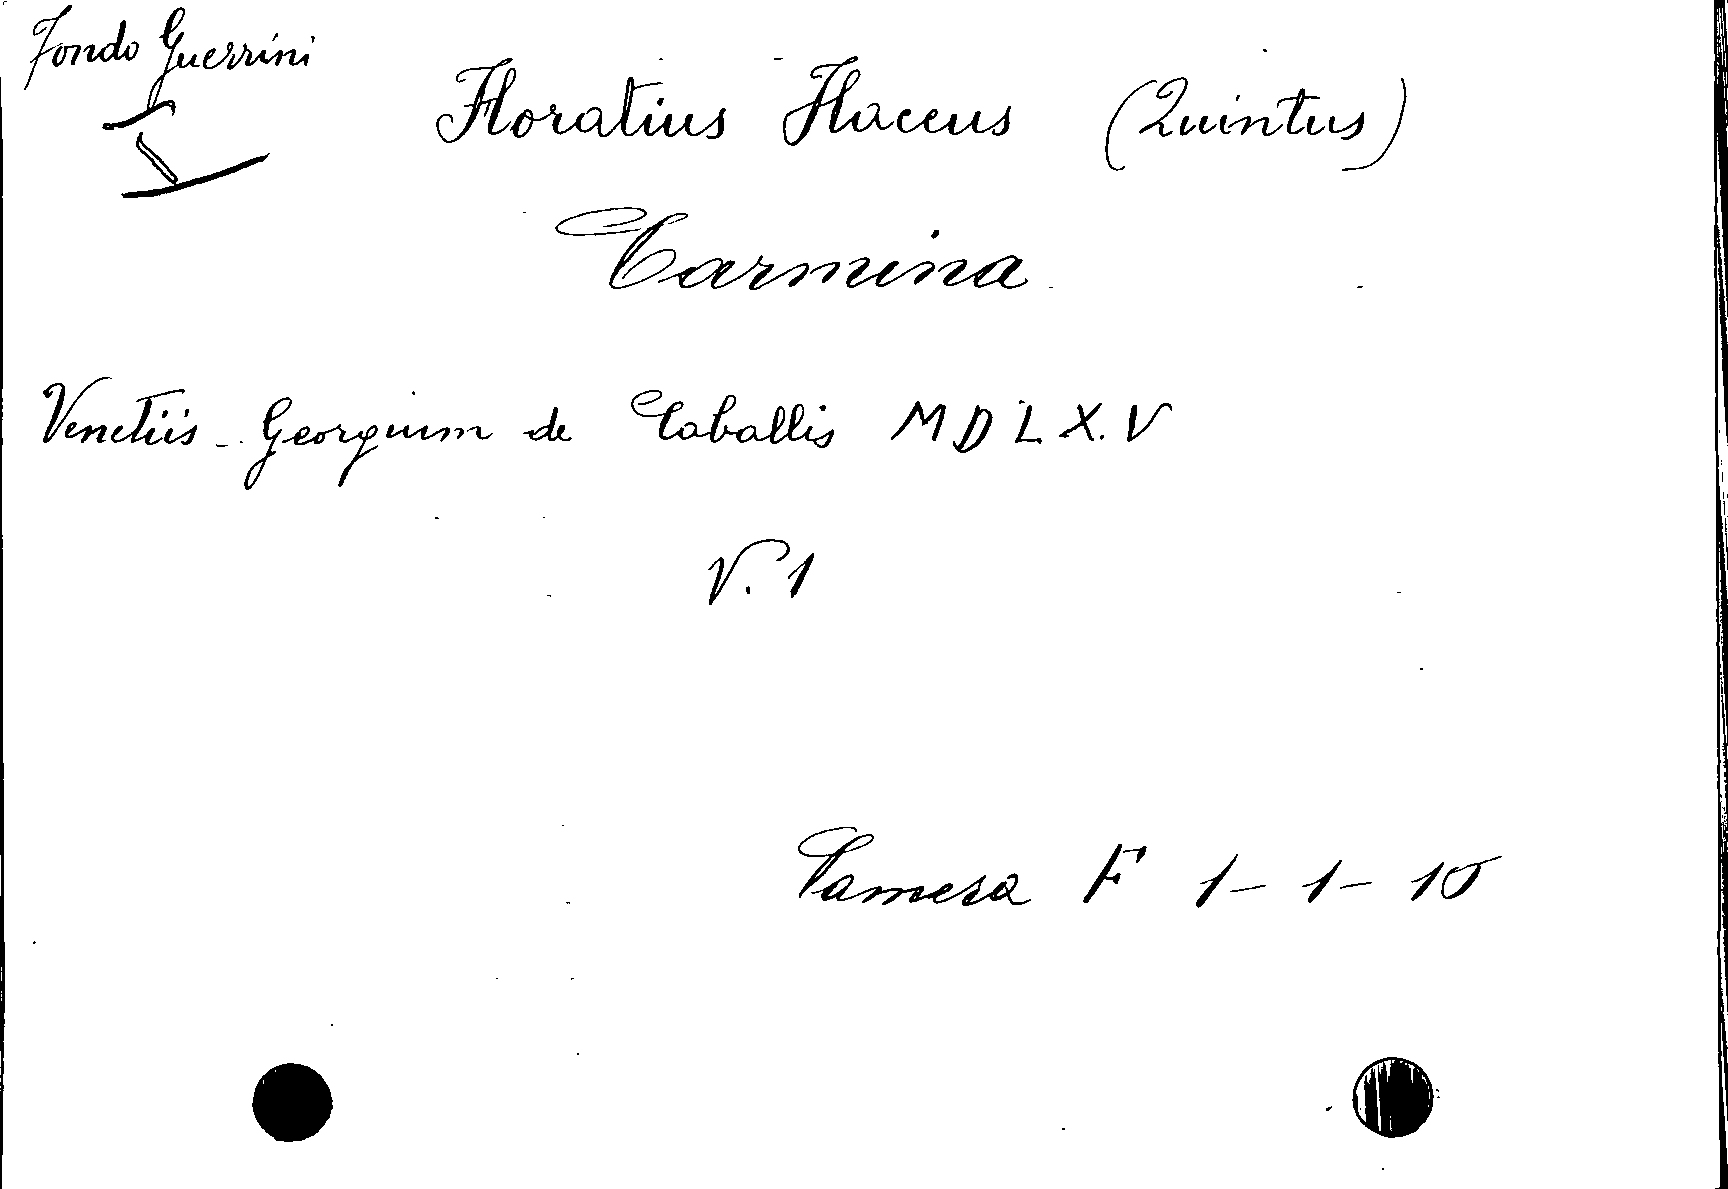 Fondo Guerrini
Horatius Flaccus (Quintus)
Carmina
Venetiis - Georgium de Caballis MDLX.V
V. 1
Camera F 1-1-10